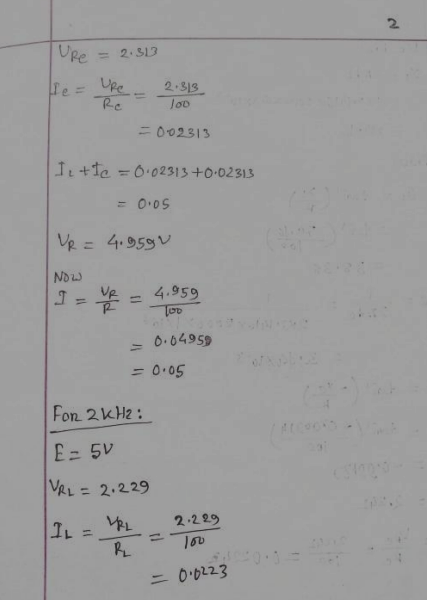 2
V_RC = 2.313
I_C = V_RC / R_C = 2.313 / 100
= 0.02313
I_L + I_C = 0.02313 + 0.02313
= 0.05
V_R = 4.959V
NOW
I = V_R / R = 4.959 / 100
= 0.04959
= 0.05
For 2 kHz:
E = 5V
V_RL = 2.229
I_L = V_RL / R_L = 2.229 / 100
= 0.0223